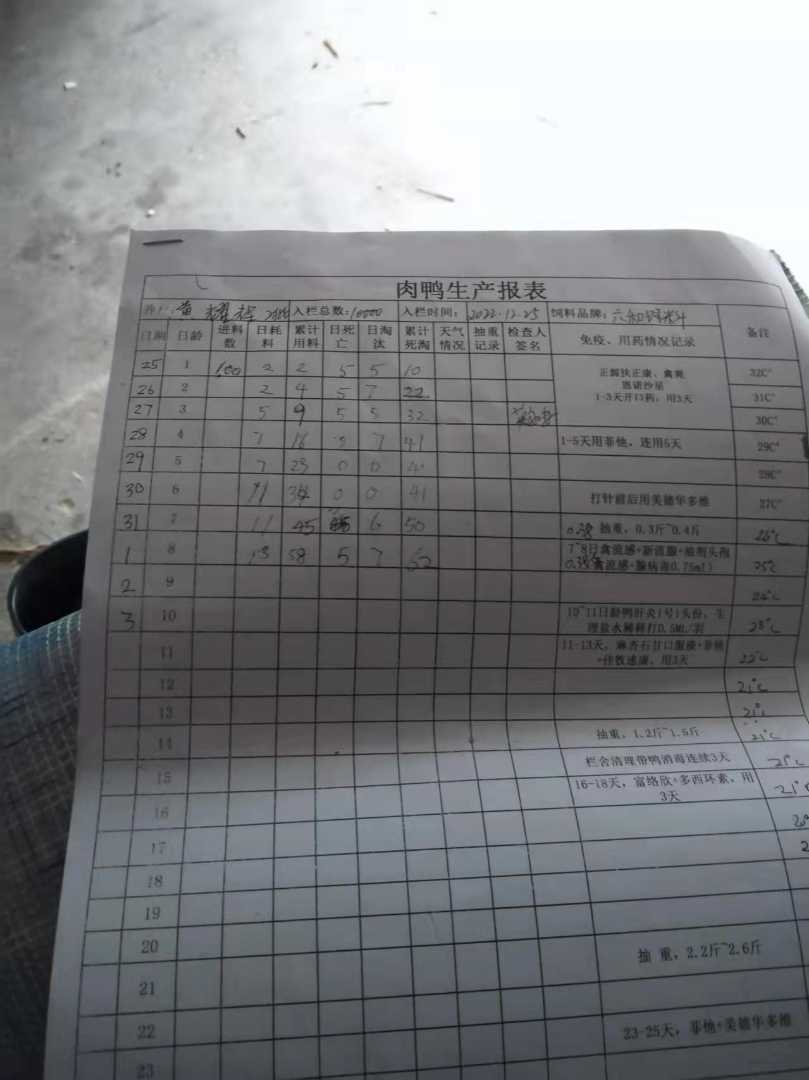 肉鸭生产报表
黄 入栏总数:10000 入栏时间: 2022.12.25 饲料品牌:六和饲料
日期 日龄 进料数 日耗料 累计用料 日死亡 日淘汰 累计死淘 天气情况 抽重记录 检查人签名 免疫、用药情况记录 备注
25 1 100 2 2 5 5 10 正源扶正康、禽爽 32C°
恩诺沙星
1-3天开口药,用3天
26 2 2 4 5 7 22 31C°
27 3 5 9 5 5 32 30C°
28 4 7 16 7 41 1-5天用菲他,连用5天 29C°
29 5 7 23 0 0 28C°
30 6 11 34 0 0 41 打针前后用美德华多维 27C°
31 7 11 45 6 50 抽重,0.3斤~0.4斤 26°C
1 8 13 58 5 7 62 7~8日禽流感+新流腺+ 25°C
禽流感+腺病毒0.75ml)
2 9 24°C
3 10 10~11日龄鸭肝炎1号1头份,生理盐水稀释打0.5ML/羽 23°C
11 11-13天,麻杏石甘口服液+ 用3天 22°C
12 21°C
13 21°C
14 抽重,1.2斤~1.5斤 21°C
15 栏舍清理带鸭消毒连续3天 21°C
16 16-18天,富络欣+多西环素,用3天 21°C
17
18
19
20 抽 重,2.2斤~2.6斤
21
22 23-25天,菲他+美德华多维
23